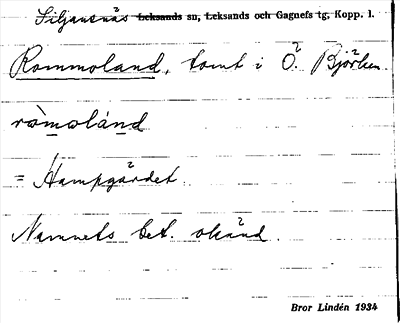 Siljansnäs Leksands sn, Leksands och Gagnefs tg, Kopp. l.
Rommoland, tomt i Ö. Björken.
ròmolánd
= Hampgärdet.
Namnets bet. okänd.
Bror Lindén 1934